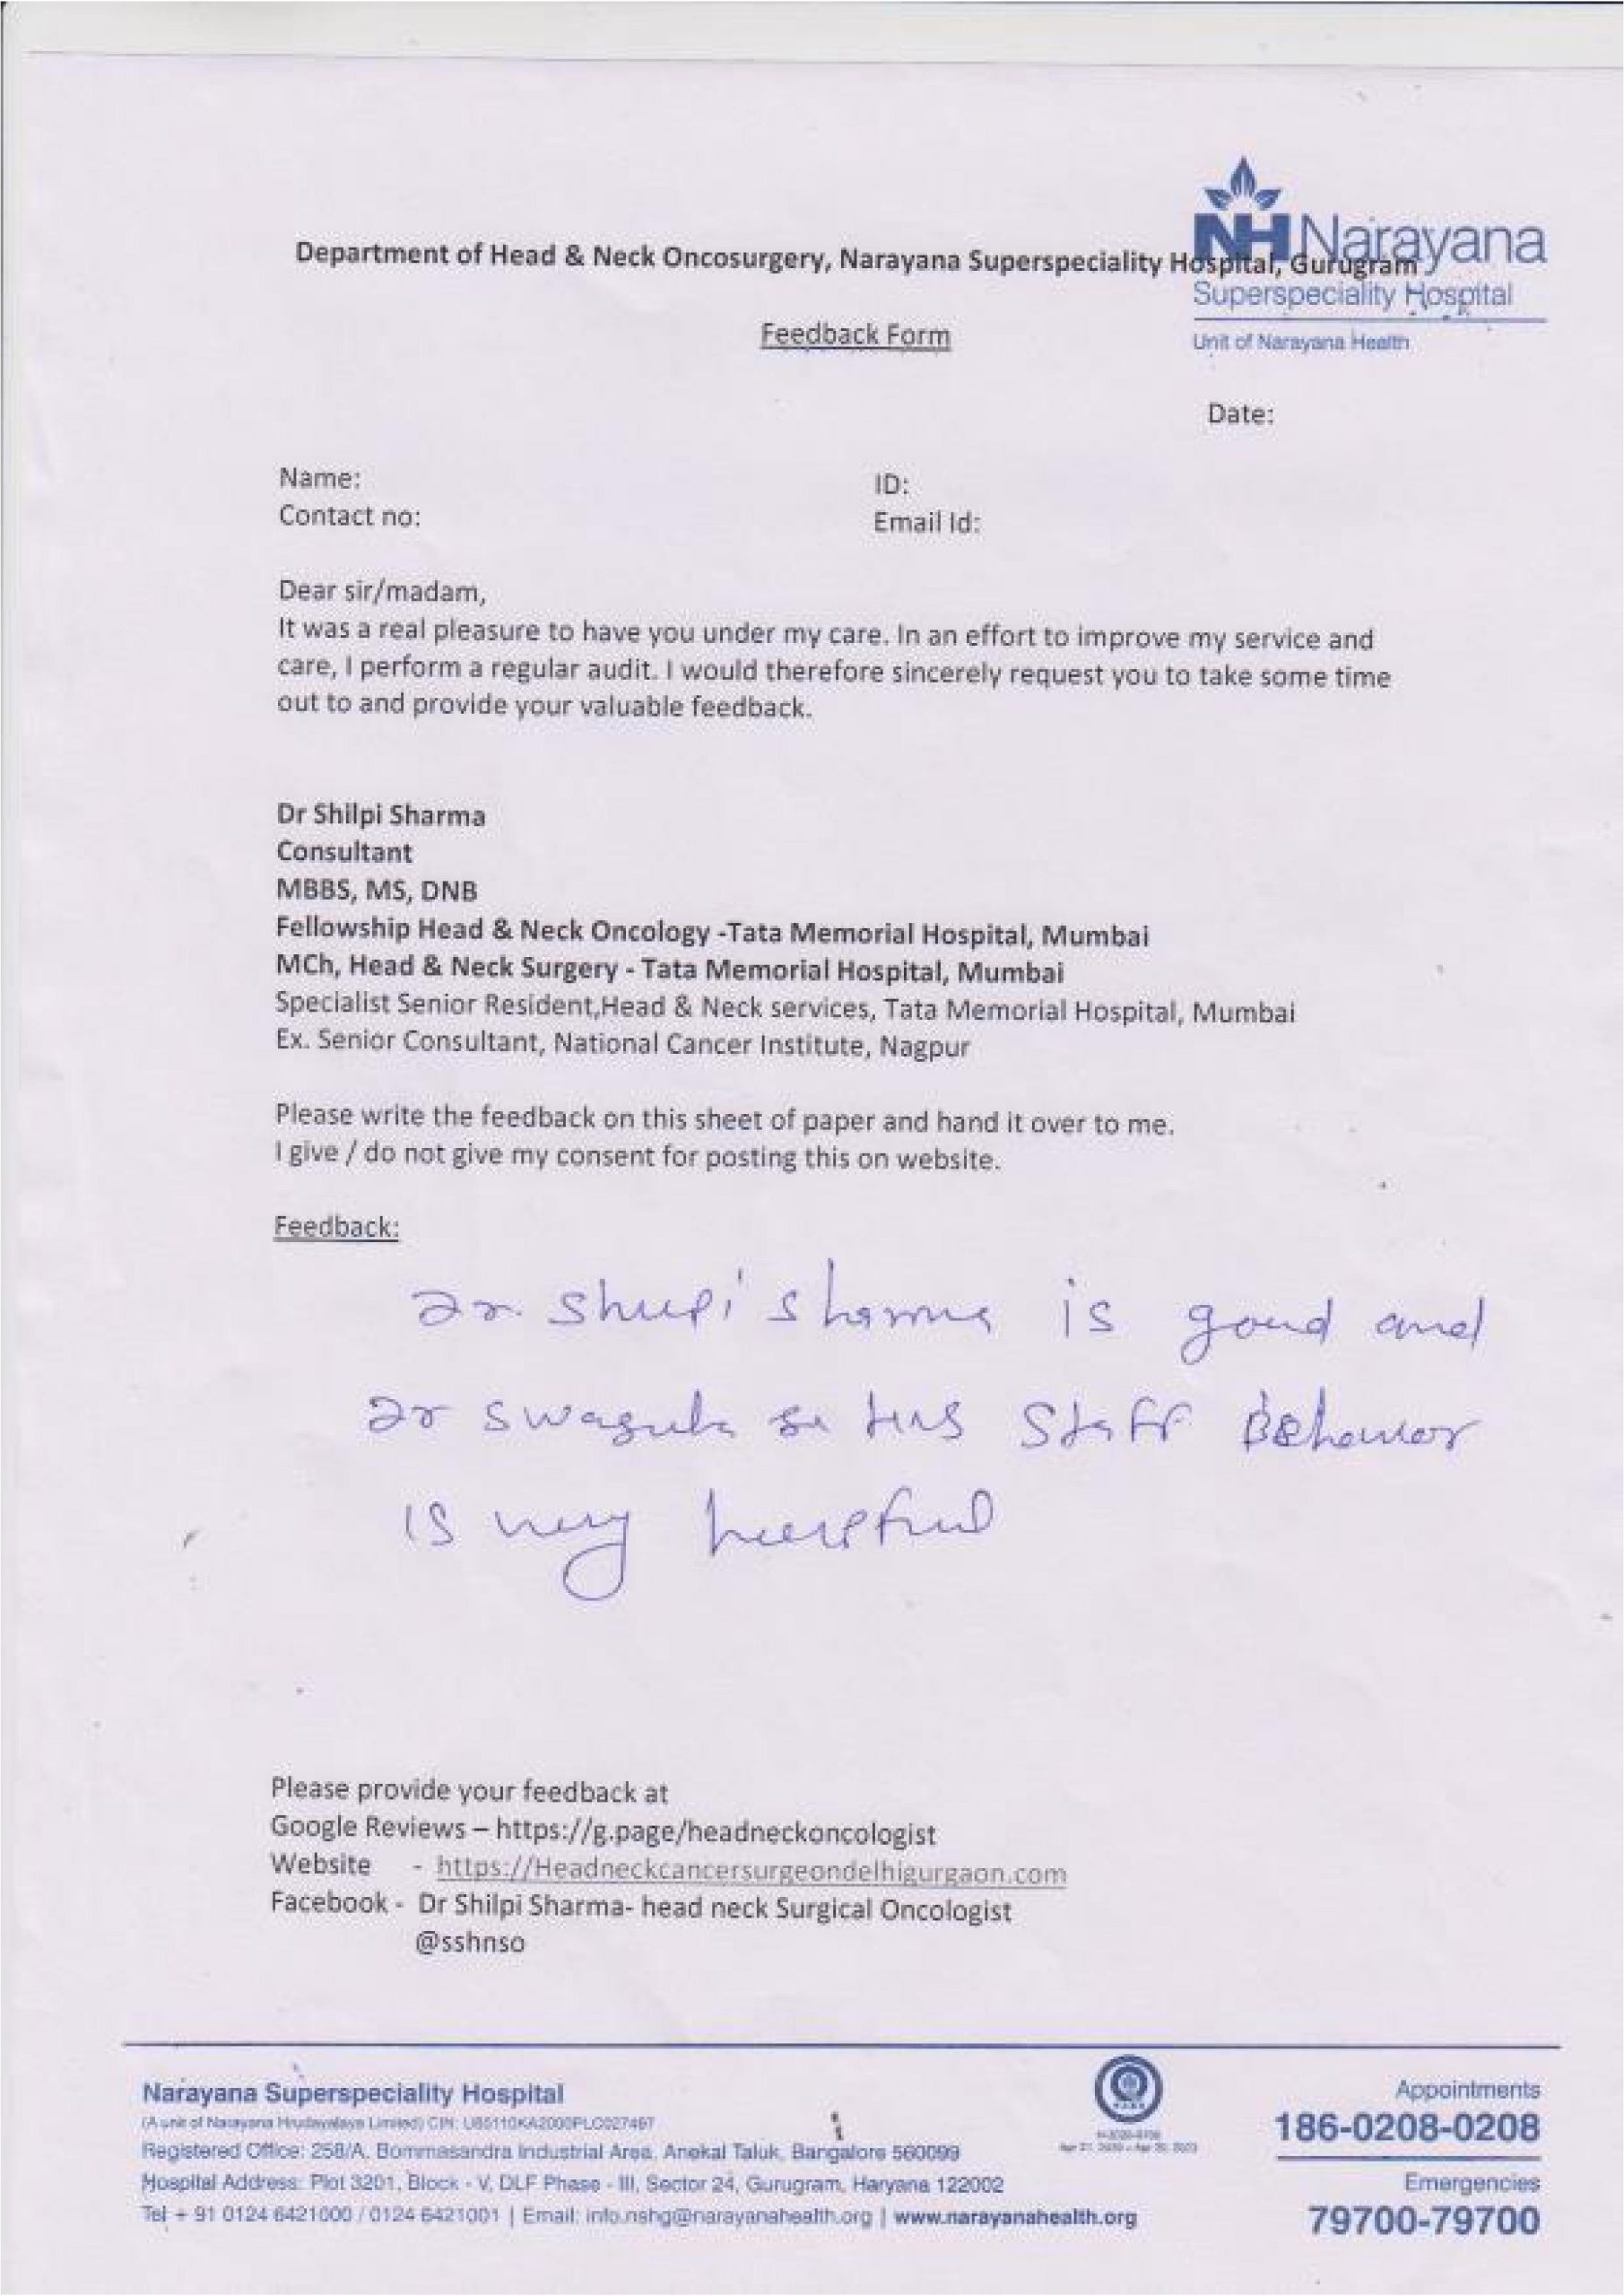 NH Narayana
Superspeciality Hospital
Unit of Narayana Health
Department of Head & Neck Oncosurgery, Narayana Superspeciality Hospital, Gurugram
Feedback Form
Date:
Name:
ID:
Contact no:
Email Id:
Dear sir/madam,
It was a real pleasure to have you under my care. In an effort to improve my service and
care, I perform a regular audit. I would therefore sincerely request you to take some time
out to and provide your valuable feedback.
Dr Shilpi Sharma
Consultant
MBBS, MS, DNB
Fellowship Head & Neck Oncology -Tata Memorial Hospital, Mumbai
MCh, Head & Neck Surgery - Tata Memorial Hospital, Mumbai
Specialist Senior Resident,Head & Neck services, Tata Memorial Hospital, Mumbai
Ex. Senior Consultant, National Cancer Institute, Nagpur
Please write the feedback on this sheet of paper and hand it over to me.
I give / do not give my consent for posting this on website.
Feedback:
Dr. Shilpi Sharma is good and
Dr Staff Behavior
is very helpful
Please provide your feedback at
Google Reviews – https://g.page/headneckoncologist
Website - https://Headneckcancersurgeondelhigurgaon.com
Facebook - Dr Shilpi Sharma- head neck Surgical Oncologist
@sshnso
Narayana Superspeciality Hospital
(A unit of Narayana Hrudayalaya Limited) CIN: U85110KA2000PLC027497
Registered Office: 258/A, Bommasandra Industrial Area, Anekal Taluk, Bangalore 560099
Hospital Address: Plot 3201, Block - V, DLF Phase - III, Sector 24, Gurugram, Haryana 122002
Tel + 91 0124 6421000 / 0124 6421001 | Email: info.nshg@narayanahealth.org | www.narayanahealth.org
Appointments
186-0208-0208
Emergencies
79700-79700